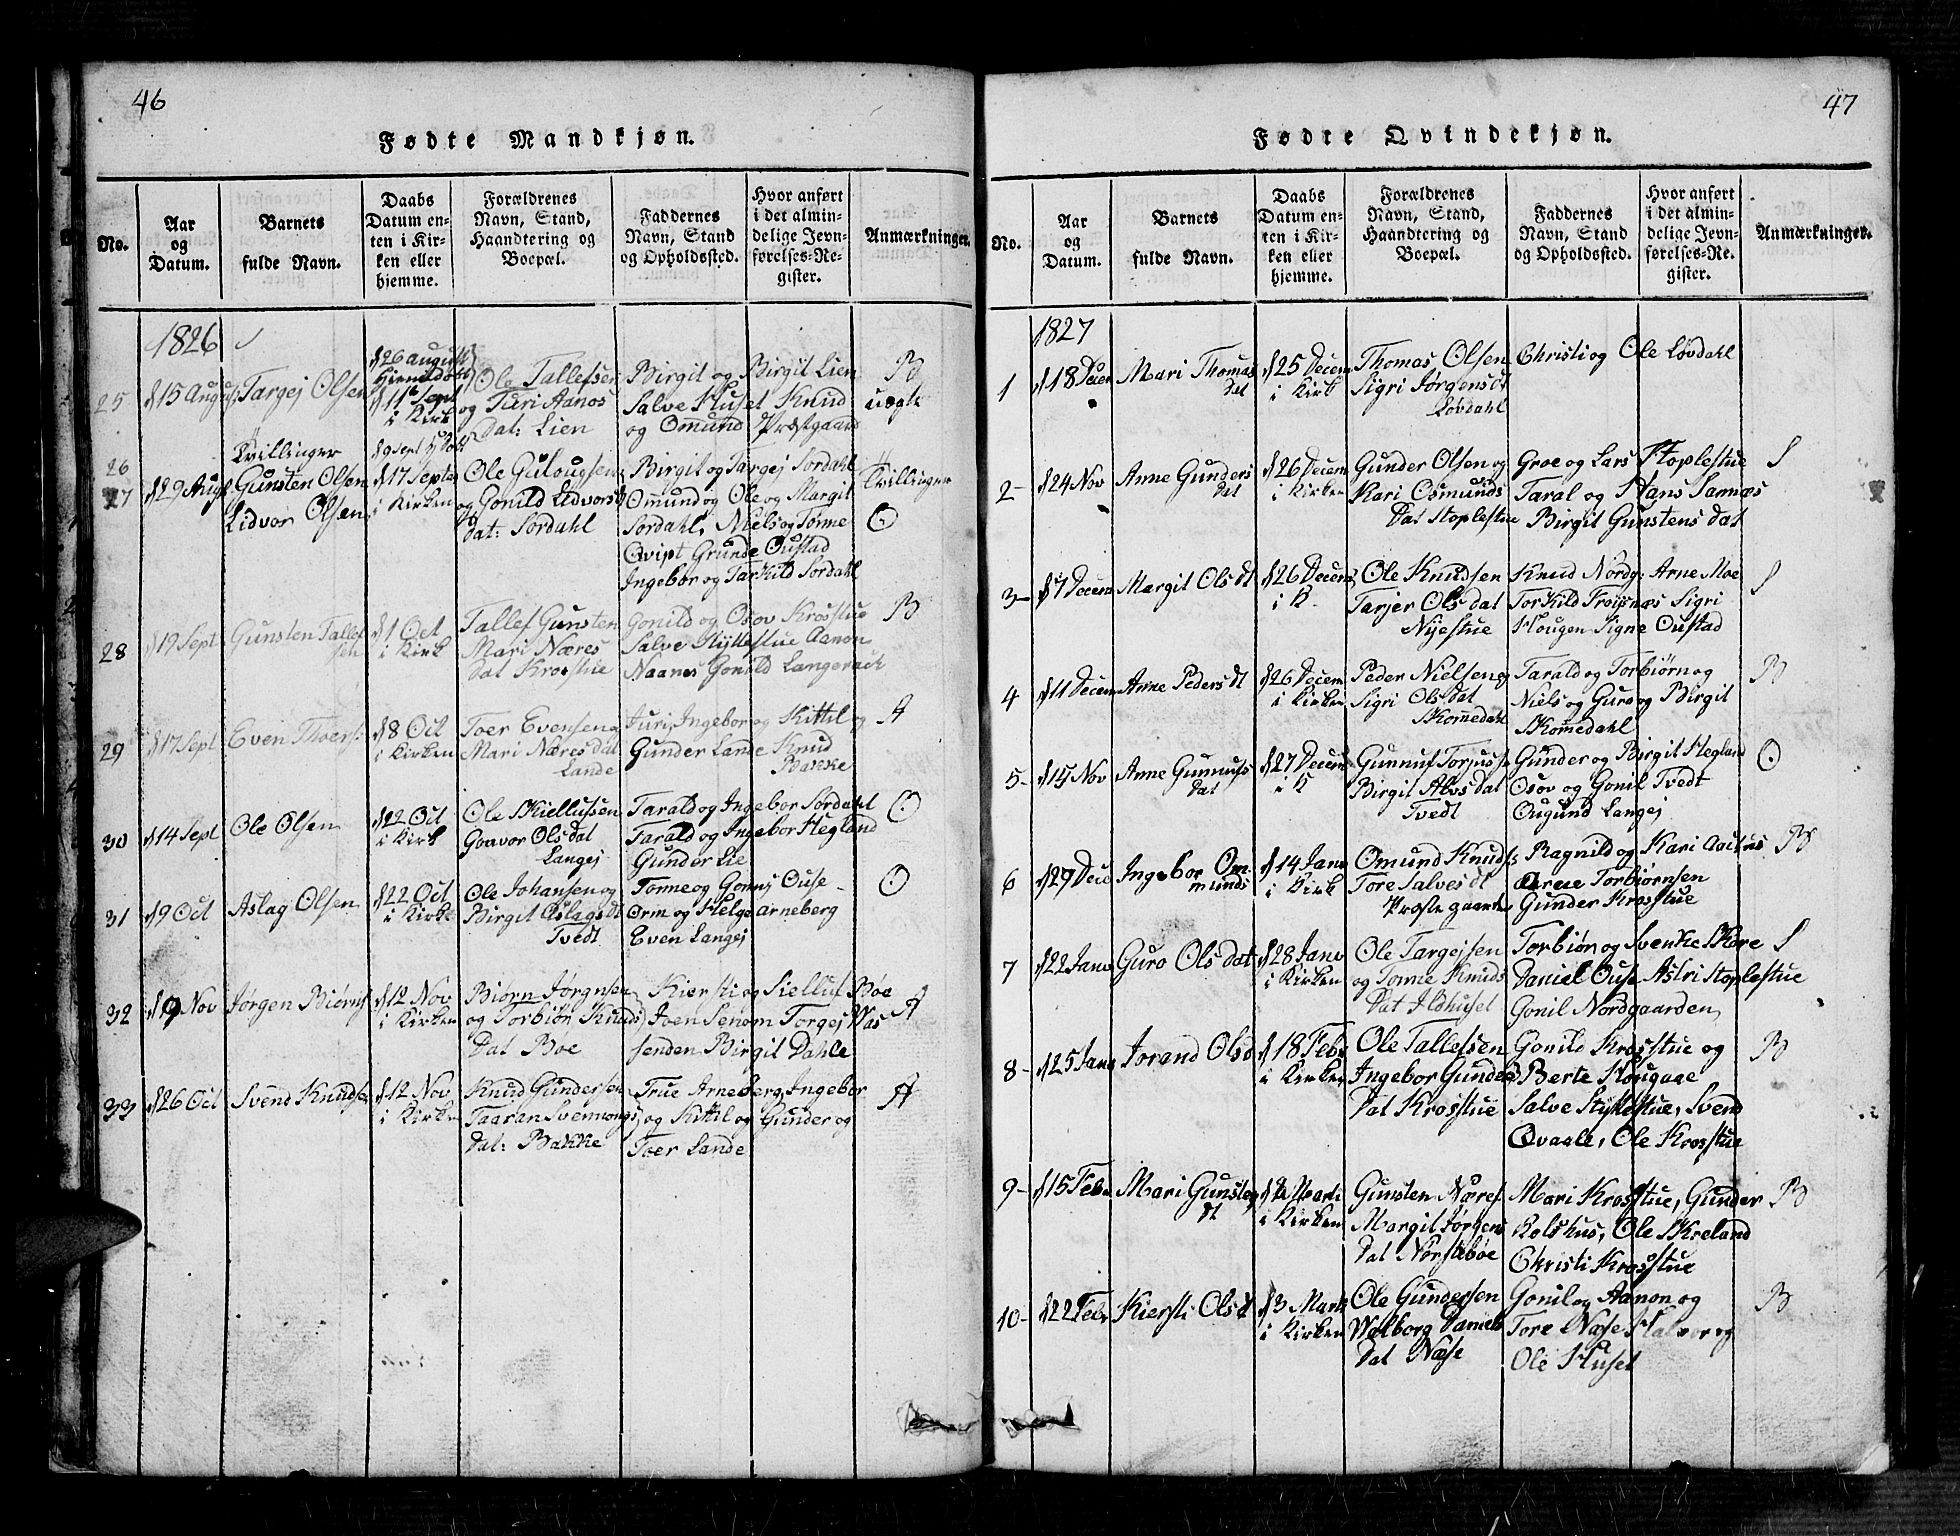 46
Fødte Mandkjøn.
No.
Aar
og
Datum.
Barnets
fulde Navn.
Daabs
Datum en-
ten i Kir-
ken eller
hjemme.
Forældrenes
Navn, Stand,
Haandtering og
Boepæl.
Faddernes
Navn, Stand
og Opholdssted.
Hvor anført
i det almin-
delige Jevn-
førelses-Re-
gister.
Anmærkninger.
1826
25
d 15 August
Targej Olsen
d 26 August
Hiemedøbt
d 11te Sept
i Kirk
Ole Tallefsen
og Turi Aanos
Dat: Lien
Birgit og Birgit Lien
Salve Huset Knud
og Omund Præstgaard
B
uægte
26
27
d 29 Augt
Tvillinger
Gunsten Olsen
Lidvor Olsen
d 9 Sept H Døbt
d 17 Septe
i Kirken
Ole Gulougsen
og Gonild Lidvors
Dat: Sordahl
Birgit og Targej Sordahl
Omund og Ole og Margit
Sordahl, Niels og Tønne
Qvist Grunde Oustad
Ingebor og Tarkild Sordahl
Tvillinger
O
28
d 19 Sept
Gunsten Tallef
sen
d 1 Oct
i Kirk
Tallef Gunsten
Mari Næres
Dat Krosstue
Gonild og Osov Krosstue
Salve Stykkestue Aanon
Naanes Gonild Langerack
B
29
d 17 Sept
Even Thoers:
d 8 Oct
i Kirken
Toer Evensen og
Mari Næres dat
Lande
Juri, Ingebor og Kittil og
Gunder Lande Knud
Bakke
A
30
d 14 Sept
Ole Olsen
d 22 Oct
i Kirk
Ole Skiellufsen
Goavor Ols dat
Langej
Tarald og Ingebor Sordahl
Tarald og Ingebor Hegland
Gunder Lie
O
31
d 9 Oct
Aslag Olsen
d 22 Oct
i Kirke
Ole Johansen og
Birgit Aslags dt
Tvedt
Tonne og Gonnj Ouse
Orm og Helge arneberg
Even Langej
O
32
d 9 Nov
Jørgen Biørns
d 12 Nov
i Kirken
Biørn Jørgnsen
og Torbiør Knuds
Dat Boe
Kiersti og Sielluf Bøe
Joen Senom Torgej Was
senden Birgit Dahle
A
33
d 26 Oct
Svend Knudsen
d 12 Nov
i Kirken
Knud Gundersen
Taaran Svennongs
Dat: Bakke
True Arneberg, Ingebor
og Kittil og Gunder og
Toer Lande
A
47
Fødte Qvindekjøn.
No.
Aar
og
Datum.
Barnets
fulde Navn.
Daabs
Datum en-
ten i Kir-
ken eller
hjemme.
Forældrenes
Navn, Stand,
Haandtering og
Boepæl.
Faddernes
Navn, Stand
og Opholdssted.
Hvor anført
i det almin-
delige Jevn-
førelses-Re-
gister.
Anmærkninger.
1827
1
d 18 Decem
Mari Thomas
dat
d 25 Decem
i Kirk
Thomas Olsen
Sigri Jørgens dt
Løvdahl
Christi og Ole Løvdahl
2
d 24 Nov
Anne Gunders
dat
d 26 Decem
i Kirken
Gunder Olsen og
Kari Osmunds
Dat Stoplestue
Groe og Lars Stoplestue
Taral og Hans Samnæs
Birgit Gunstens dat
S
3
d 7 Decem
Margit Ols dt
d 26 Decem
i K.
Ole Knudsen
Tarjer Ols dat
Nijestue
Knud Nordg: Arne Moe
Torkild Froisnæs Sigri
Hougen Signe Oustad
S
4
d 11 Decem
Anne Peders dt
d 26 Decem
i Kirken
Peder Nielsen og
Sigri Ols dat
Skomedahl
Tarald og Torbiørn og
Niels og Guro og Birgit
Skomedahl
B
5
d 15 Nov
Anne Gunnufs
Dat
d 27 Decem
i K
Gunnuf Torjuss
Birgit Alvs dat
Tvedt
Gunder og Birgit Hegland
Osov og Gonil Tvedt
Ougund Langej
O
6
d 29 Dec
Ingebor Om-
munds
d 14 Janv
i Kirk
Omund Knuds:
Tore Salves dt
Præstegaarde
Ragnild og Kari Aacus
Torbiørnsen
Gunder Krosstue
B
7
d 22 Janv
Guro Ols dat
d 28 Janv
i Kirken
Ole Targejsen
og Tonne Knuds
Dat Ildhuset
Torbiør og Svenke Skore
Daniel Ouse Astri Stoplestue
Gonil Nordgaarden
S
8
d 25 Janv
Jorand Olsd
d 18 Febr
i Kirken
Ole Tallefsen
Ingebor Gunders
Dat Krosstue
Gonild Krosstue og
Berte Hougaae
Salve Stykestue, Svend
Qvaale, Ole Krosstue
B
9
d 15 Febr
Mari Gunsten
dt
d 2 Marti
i Kirken
Gunsten Næres
Margit Jørgens
Dat Norstebøe
Mari Krosstue, Gunder
Kolshus, Ole Skreland
Christi Krosstue
B
10
d 22 Febr
Kiersti Ols d
d 3 Mart
i Kirken
Ole Gundersen
Walborg Daniels
Dat Næse
Gonil og Aanon og
Tore Næse Halvor og
Ole Huset
B